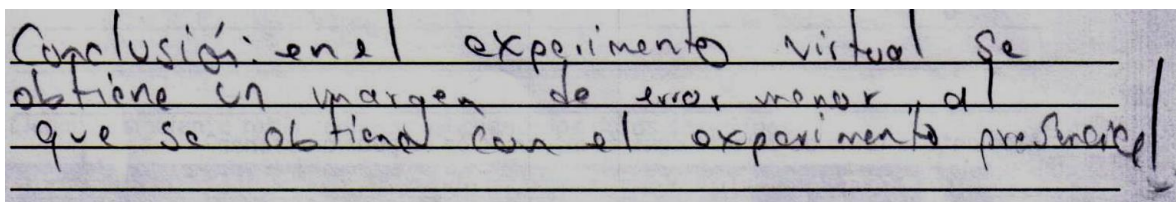 Conclusión: en el experimento virtual se
obtiene un margen de error menor, al
que se obtiene con el experimento presencial